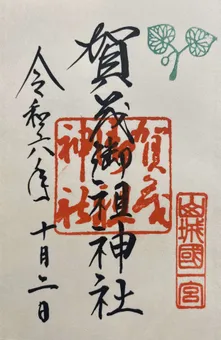 山城國一宮
賀茂御祖神社
賀茂
御祖
神社
令和六年十月二日